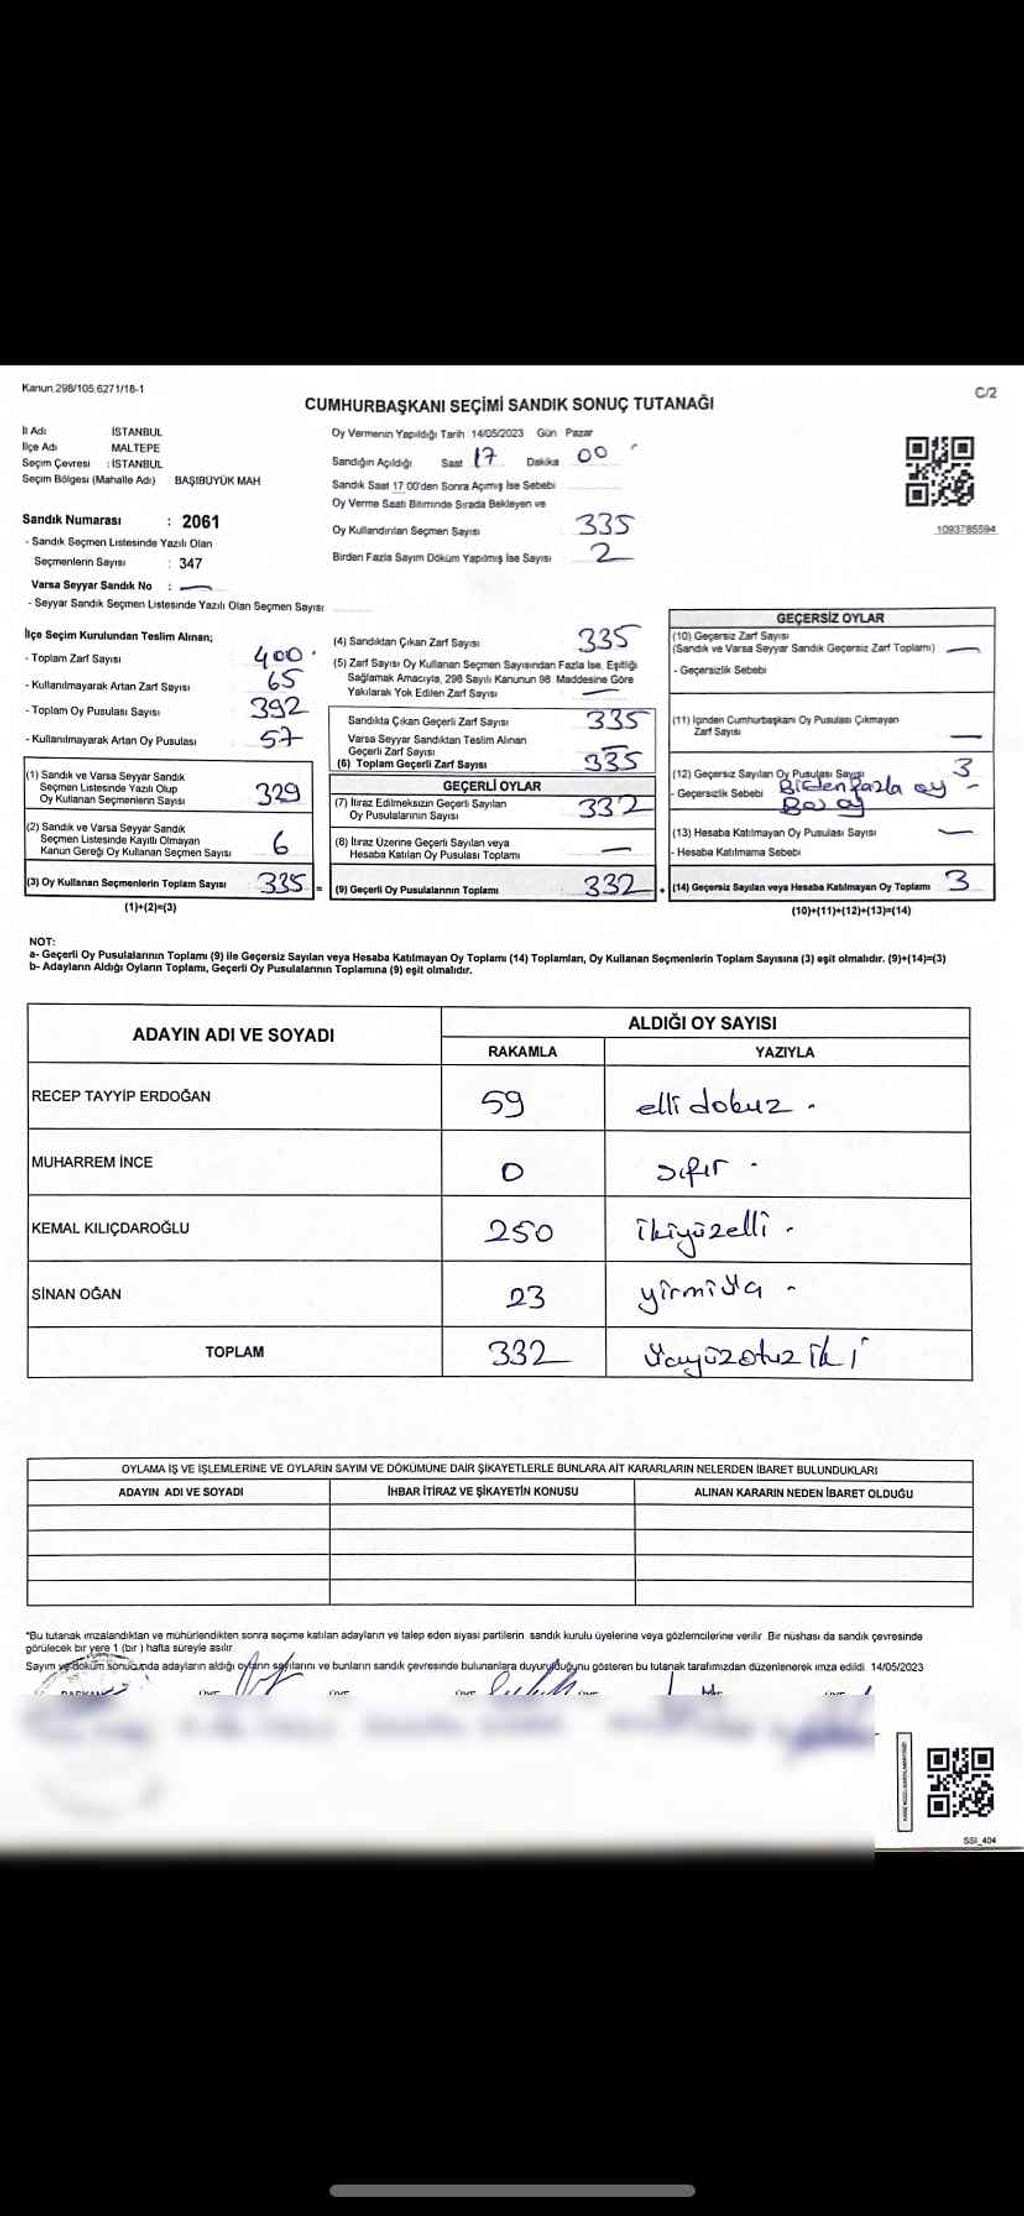 Kanun 298/105 6271/18-1
C/2
CUMHURBAŞKANI SEÇİMİ SANDIK SONUÇ TUTANAĞI
İl Adı İSTANBUL
İlçe Adı MALTEPE
Seçim Çevresi : İSTANBUL
Seçim Bölgesi (Mahalle Adı) BAŞIBÜYÜK MAH
Sandık Numarası : 2061
- Sandık Seçmen Listesinde Yazılı Olan
Seçmenlerin Sayısı : 347
Varsa Seyyar Sandık No : —
- Seyyar Sandık Seçmen Listesinde Yazılı Olan Seçmen Sayısı
Oy Vermenin Yapıldığı Tarih 14/05/2023 Gün Pazar
Sandığın Açıldığı Saat 17 Dakika 00
Sandık Saat 17 00'den Sonra Açımış İse Sebebi
Oy Verme Saati Bitiminde Sırada Bekleyen ve
Oy Kullandırılan Seçmen Sayısı 335
Birden Fazla Sayım Döküm Yapılmış İse Sayısı 2
1093785594
İlçe Seçim Kurulundan Teslim Alınan;
- Toplam Zarf Sayısı 400
- Kullanılmayarak Artan Zarf Sayısı 65
- Toplam Oy Pusulası Sayısı 392
- Kullanılmayarak Artan Oy Pusulası 57
(1) Sandık ve Varsa Seyyar Sandık
Seçmen Listesinde Yazılı Olup
Oy Kullanan Seçmenlerin Sayısı 329
(2) Sandık ve Varsa Seyyar Sandık
Seçmen Listesinde Kayıtlı Olmayan
Kanun Gereği Oy Kullanan Seçmen Sayısı 6
(3) Oy Kullanan Seçmenlerin Toplam Sayısı 335 =
(1)+(2)=(3)
(4) Sandıktan Çıkan Zarf Sayısı 335
(5) Zarf Sayısı Oy Kullanan Seçmen Sayısından Fazla İse, Eşitliği
Sağlamak Amacıyla, 298 Sayılı Kanunun 98 Maddesine Göre
Yakılarak Yok Edilen Zarf Sayısı —
Sandıkta Çıkan Geçerli Zarf Sayısı 335
Varsa Seyyar Sandıktan Teslim Alınan
Geçerli Zarf Sayısı —
(6) Toplam Geçerli Zarf Sayısı 335
GEÇERLİ OYLAR
(7) İtiraz Edilmeksizin Geçerli Sayılan
Oy Pusulalarının Sayısı 332
(8) İtiraz Üzerine Geçerli Sayılan veya
Hesaba Katılan Oy Pusulası Toplamı —
(9) Geçerli Oy Pusulalarının Toplamı 332 +
GEÇERSİZ OYLAR
(10) Geçersiz Zarf Sayısı
(Sandık ve Varsa Seyyar Sandık Geçersiz Zarf Toplamı) —
- Geçersizlik Sebebi
(11) İçinden Cumhurbaşkanı Oy Pusulası Çıkmayan
Zarf Sayısı —
(12) Geçersiz Sayılan Oy Pusulası Sayısı 3
- Geçersizlik Sebebi Birden fazla oy -
(13) Hesaba Katılmayan Oy Pusulası Sayısı —
- Hesaba Katılmama Sebebi
(14) Geçersiz Sayılan veya Hesaba Katılmayan Oy Toplamı 3
(10)+(11)+(12)+(13)=(14)
NOT:
a- Geçerli Oy Pusulalarının Toplamı (9) ile Geçersiz Sayılan veya Hesaba Katılmayan Oy Toplamı (14) Toplamları, Oy Kullanan Seçmenlerin Toplam Sayısına (3) eşit olmalıdır. (9)+(14)=(3)
b- Adayların Aldığı Oyların Toplamı, Geçerli Oy Pusulalarının Toplamına (9) eşit olmalıdır.
ADAYIN ADI VE SOYADI ALDIĞI OY SAYISI
RAKAMLA YAZIYLA
RECEP TAYYİP ERDOĞAN 59 elli dokuz -
MUHARREM İNCE 0 sıfır -
KEMAL KILIÇDAROĞLU 250 ikiyüzelli -
SİNAN OĞAN 23 yirmi üç -
TOPLAM 332 üçyüzotuz iki
OYLAMA İŞ VE İŞLEMLERİNE VE OYLARIN SAYIM VE DÖKÜMÜNE DAİR ŞİKAYETLERLE BUNLARA AİT KARARLARIN NELERDEN İBARET BULUNDUKLARI
ADAYIN ADI VE SOYADI İHBAR İTİRAZ VE ŞİKAYETİN KONUSU ALINAN KARARIN NEDEN İBARET OLDUĞU
*Bu tutanak imzalandıktan ve mühürlendikten sonra seçime katılan adayların ve talep eden siyasi partilerin sandık kurulu üyelerine veya gözlemcilerine verilir Bir nüshası da sandık çevresinde
görülecek bir yere 1 (bir ) hafta süreyle asılır
Sayım ve döküm sonucunda adayların aldığı oyların sayılarını ve bunların sandık çevresinde bulunanlara duyurulduğunu gösteren bu tutanak tarafımızdan düzenlenerek imza edildi 14/05/2023
SSI_404